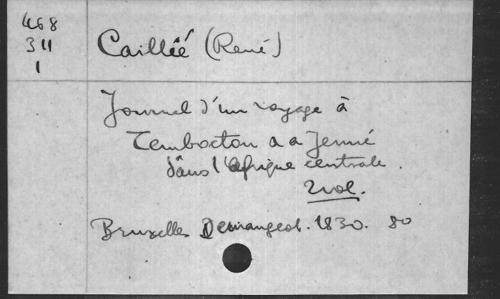 468
311
1
Caillié (René)
Journal d'un voyage à
Temboctou a a Jenné
dans l'Afrique centrale.
2 vol.
Bruxelles Demangeot. 1830. 80